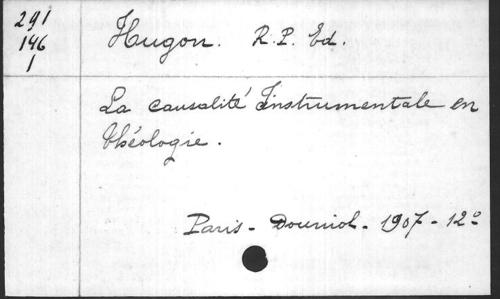 291
146
1
Hugon. R.P. Ed.
La causalité instrumentale en
théologie.
Paris - Douniol - 1907 - 12º